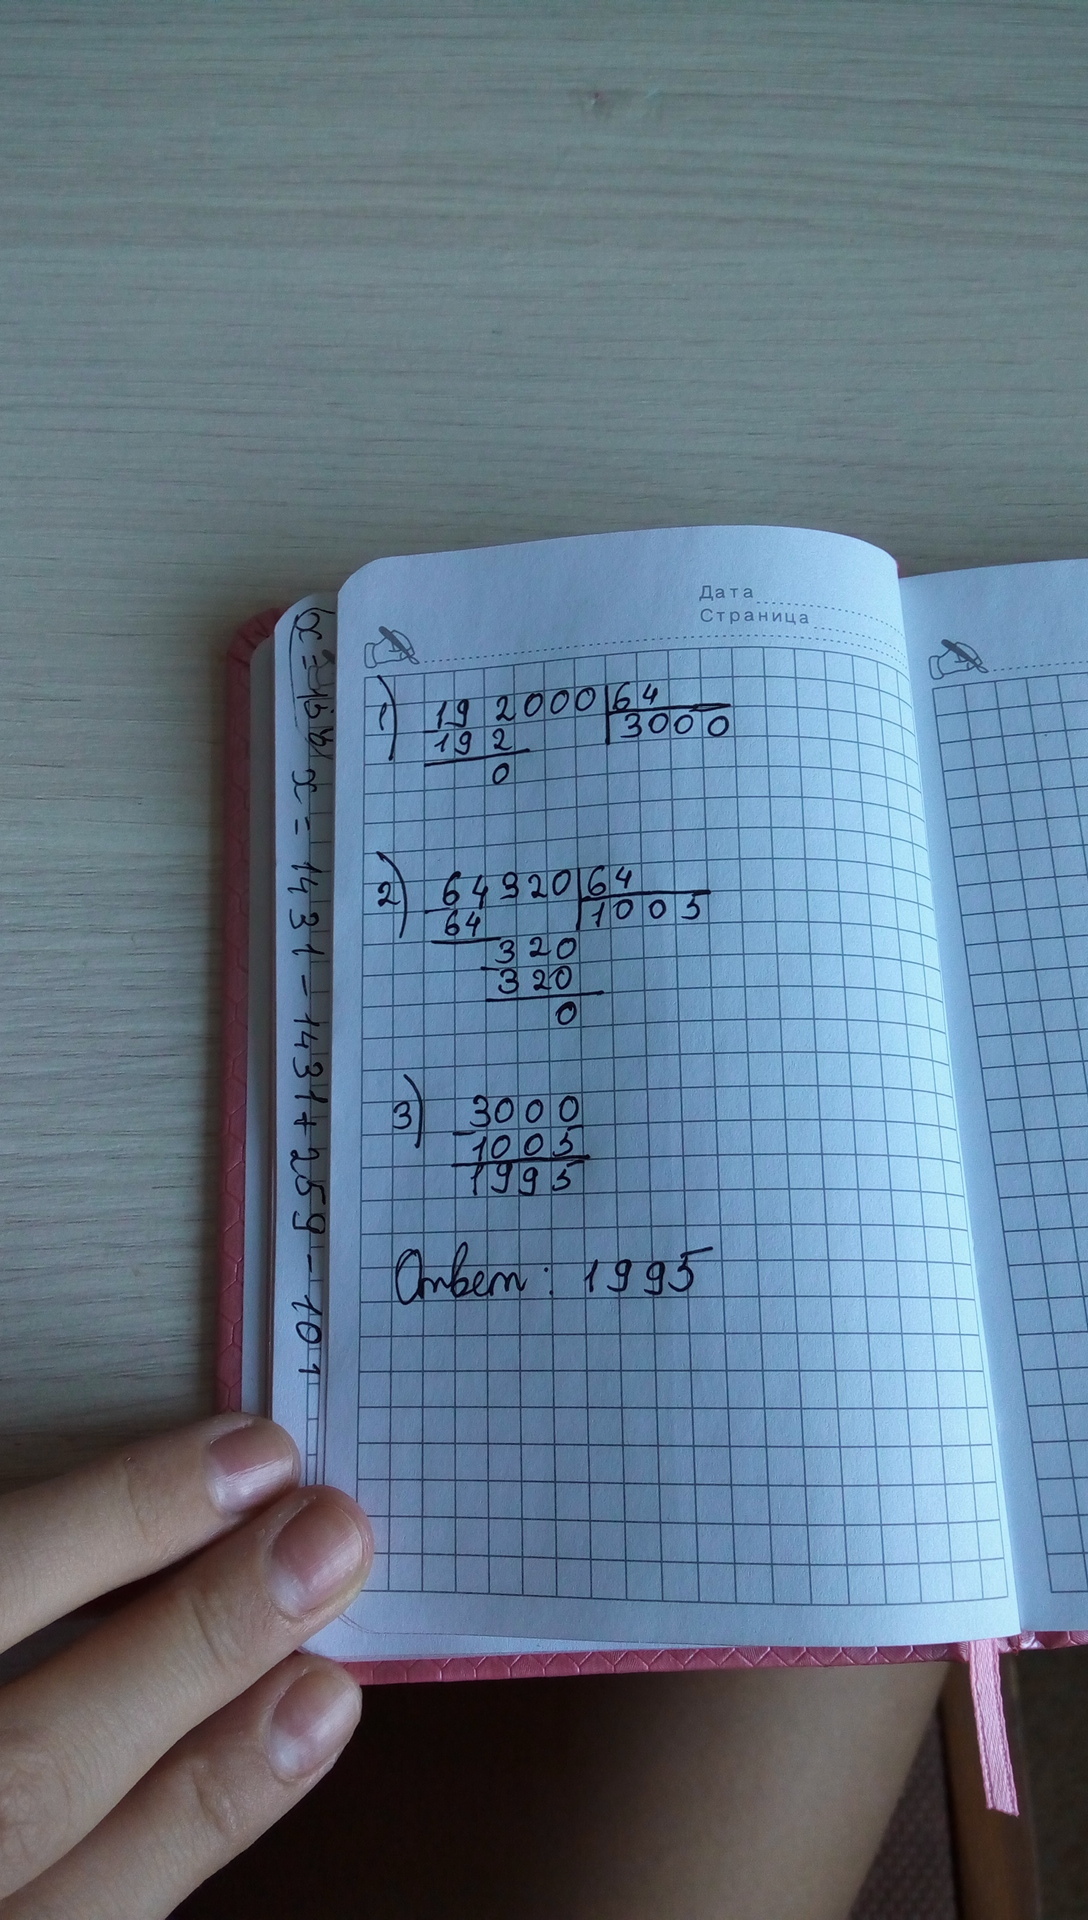 Дата
Страница
1) 192000 64
192 3000
0
2) 64920 64
64 1005
320
320
0
3) 3000
1005
1995
Ответ: 1995
x = 1431 - 1431 + 259 - 101